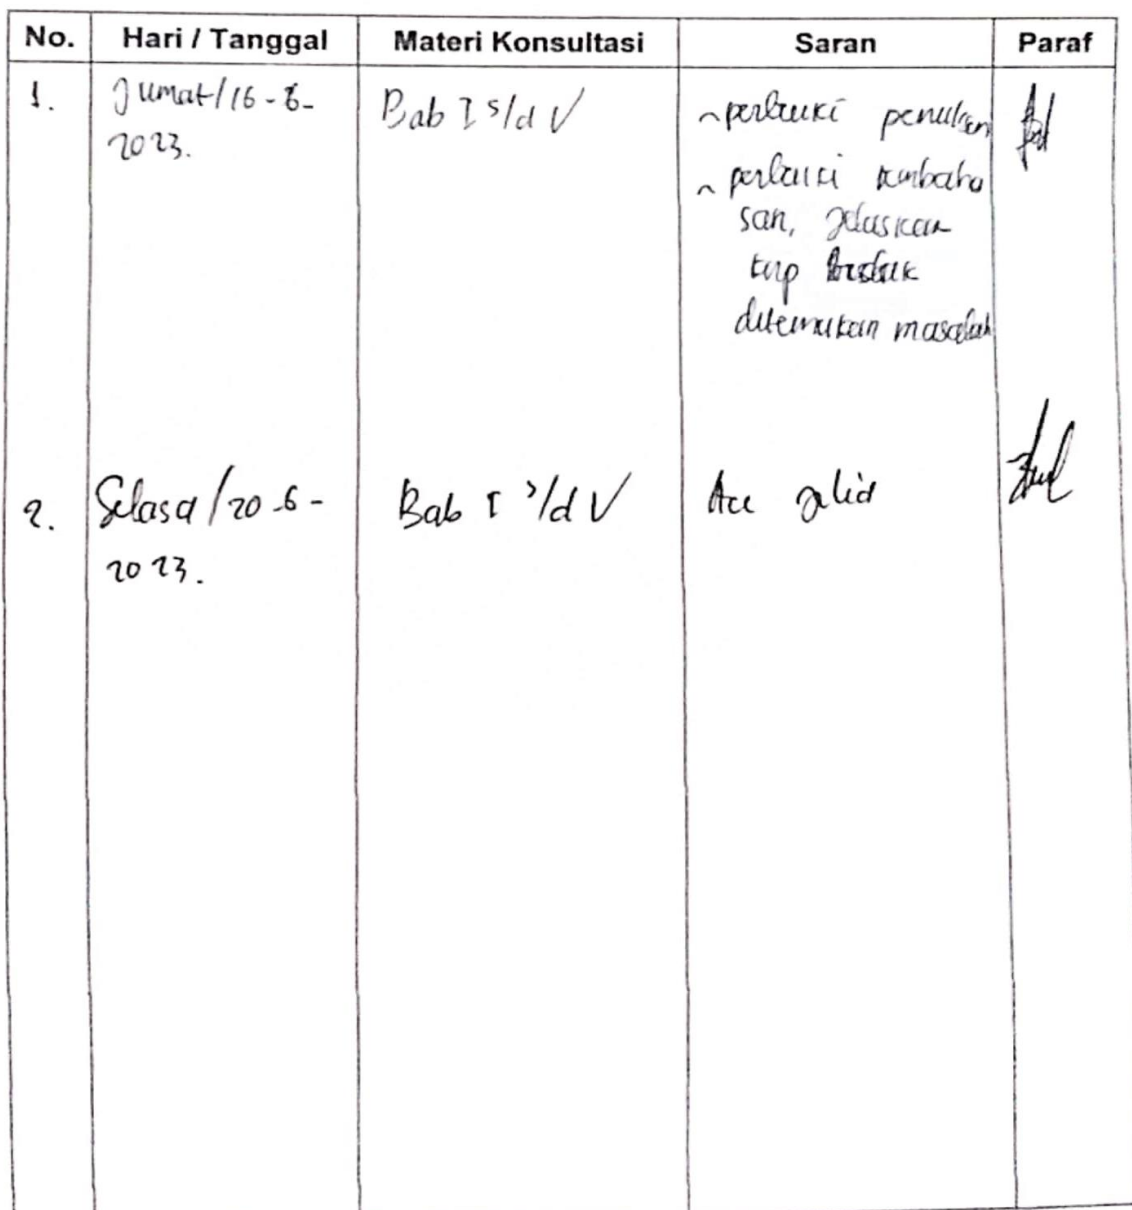 No. Hari / Tanggal Materi Konsultasi Saran Paraf
1. Jumat/16-6- Bab I s/d V ~ perbaiki penulisan
2023.
~ perbaiki pembaha
san, jelaskan
tiap
ditemukan masalah
2. Selasa/20-6- Bab I s/d V Acc jilid
2023.